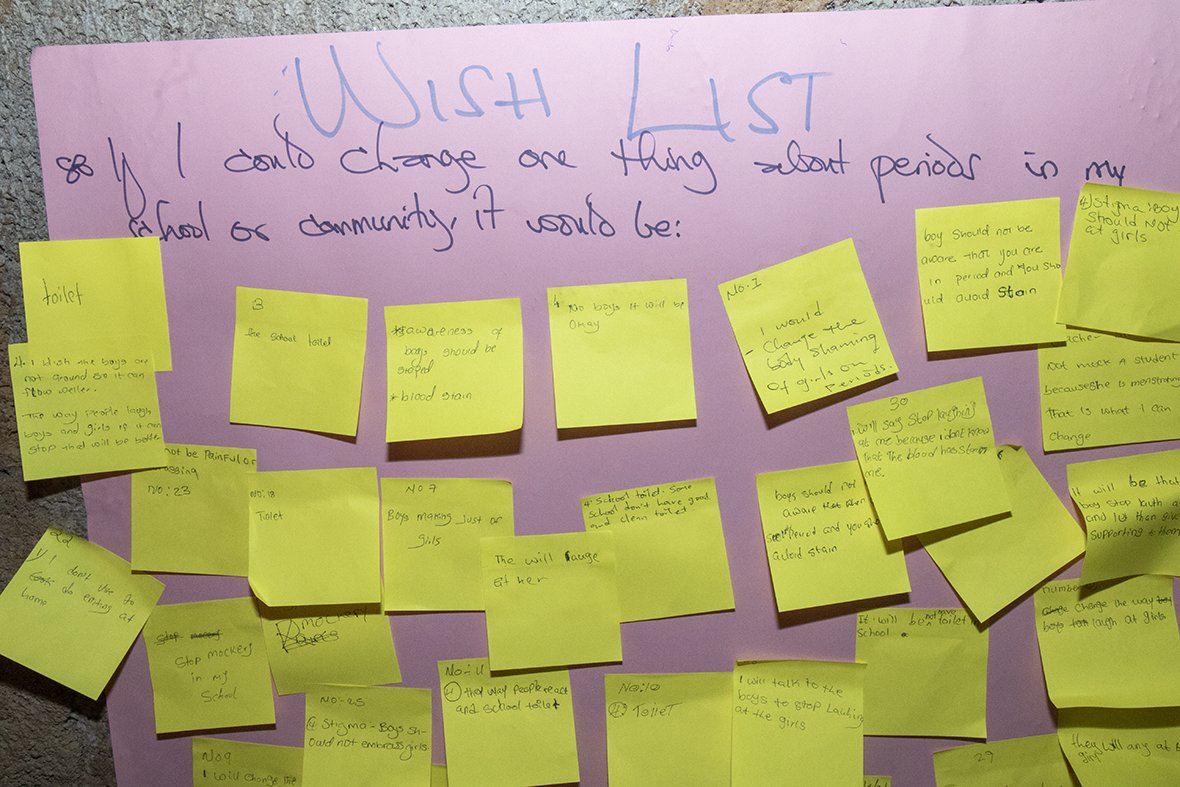 WISH LIST
If I could change one thing about periods in my
school or community, it would be:
toilet
2). I wish the boys are
not around so it can
flow weller.
The way people laugh
boys and girls if it can
stop that will be better
3
the school toilet
awareness of
boys should be
stoped
* blood stain
4 No boys it will be
Okay
NO. 1
I would
- Change the
body shaming
of girls on
periods.
boy should not be
aware that you are
in period and you sho
uld avoid stain
4) Stigma: Boy
should Not
at girls
Not mock A student
because she is menstruating
that is what I can
change
30
I will say stop laughing
at me because I dont know
that the blood has stain
me.
not be painful or
NO: 23
NO: 18
Toilet
NO 7
Boys making Just of
girls
4. School toilet. Some
school don't have good
and clean toilet
The will lauge
at her
boys should not
aware that
period and you
avoid stain
it will be that
boy stop laugh a
and let then give
supporting
22
home
Stop mockery
in my
School
mockery
NO:-25
4 Stigma - Boys sh-
ould not embrass girls
NO:- 11
4 they way people react
and school toilet
NO:10
4 Toilet
I will talk to the
boys to stop Lauhing
at the girls
It will be not have toilet in
School.
number
change the way
boys laugh at girls
NO 9
I will change the
29
they will any at
girl